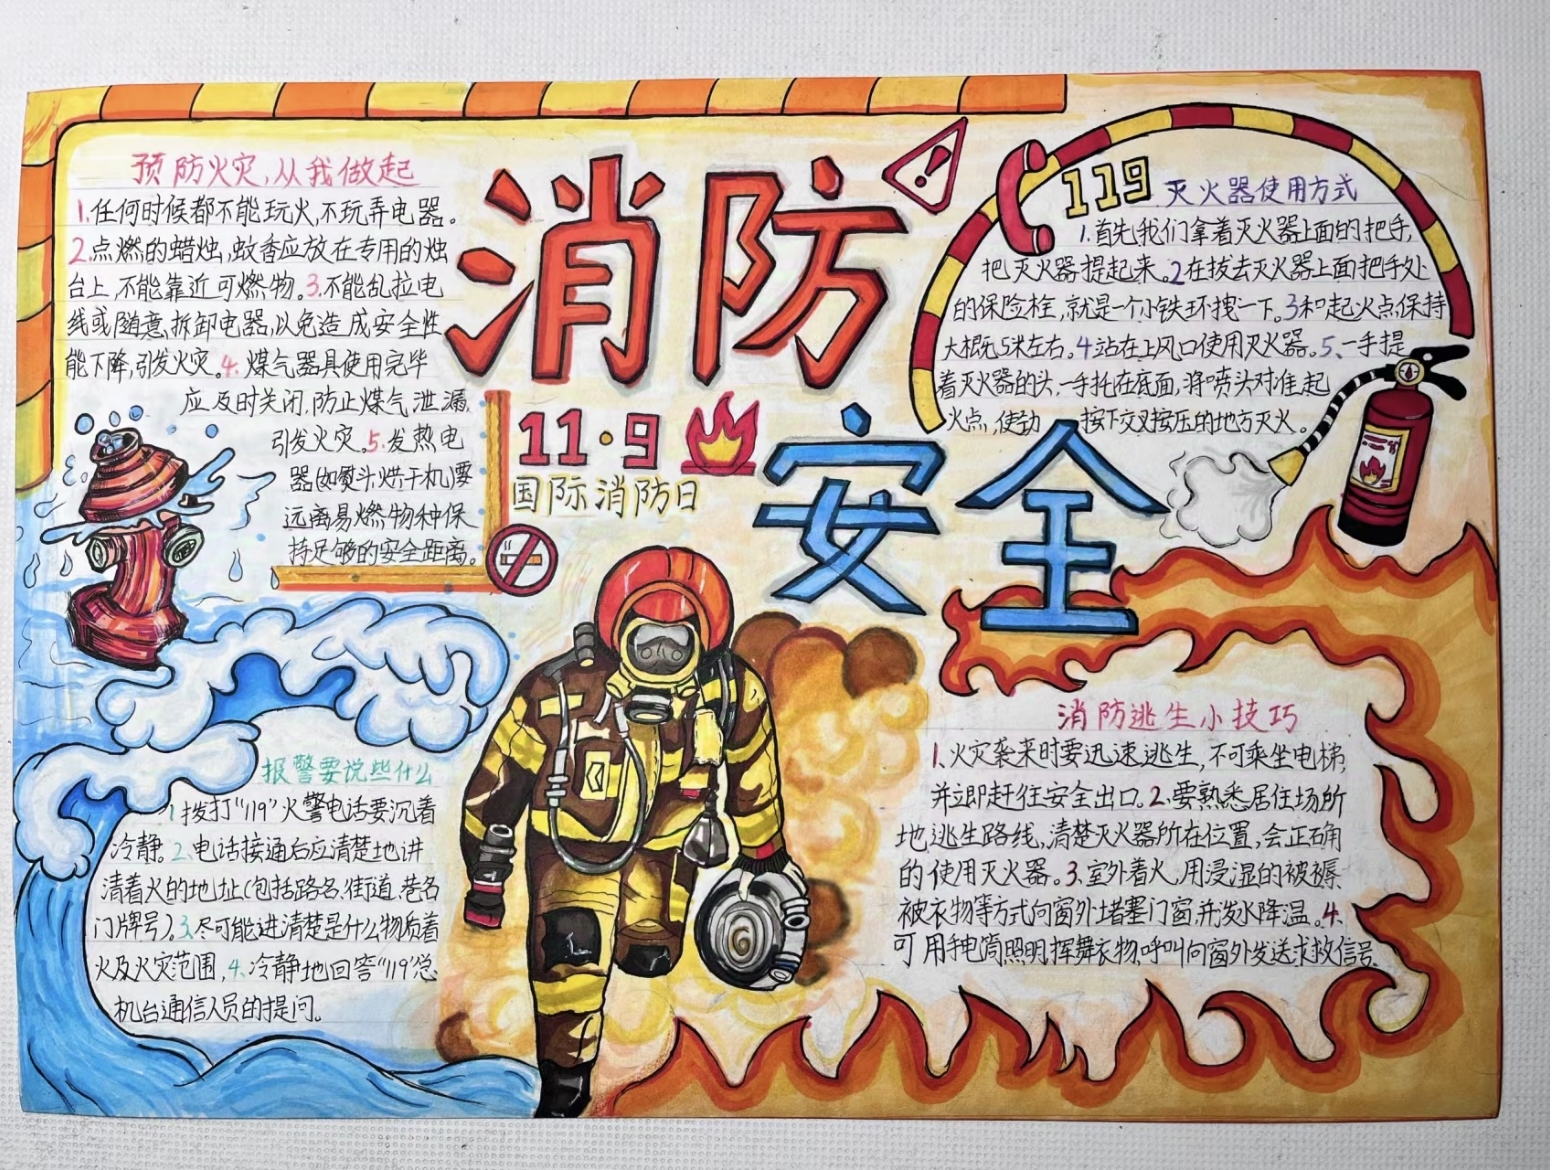 消防
安全
11·9
国际消防日
预防火灾,从我做起
1.任何时候都不能玩火,不玩弄电器。
2.点燃的蜡烛,蚊香应放在专用的烛
台上,不能靠近可燃物。3.不能乱拉电
线或随意拆卸电器,以免造成安全性
能下降,引发火灾。4.煤气器具使用完毕
应及时关闭,防止煤气泄漏,
引发火灾。5.发热电
器(如熨斗烘干机)要
远离易燃物种保
持足够的安全距离。
119
灭火器使用方式
1.首先,我们拿着灭火器上面的把手,
把灭火器提起来。2在拔去灭火器上面把手处
的保险栓,就是一个小铁环拽一下。3和起火点保持
大概5米左右。4站在上风口使用灭火器。5、一手提
着灭火器的头,一手托在底面,将喷头对准起
火点,使劲按下交叉按压的地方灭火。
报警要说些什么
1拨打"119"火警电话要沉着
冷静。2、电话接通后应清楚地讲
清着火的地址(包括路名、街道、巷名
门牌号)。3、尽可能讲清楚是什么物质着
火及火灾范围,4、冷静地回答"119"总
机台通信人员的提问。
消防逃生小技巧
1.火灾袭来时要迅速逃生,不可乘坐电梯,
并立即赶往安全出口。2.要熟悉居住场所
地逃生路线,清楚灭火器所在位置,会正确
的使用灭火器。3.室外着火,用浸湿的被褥
被衣物等方式向窗外堵塞门窗,并泼水降温。4.
可用手电筒照明挥舞衣物,呼叫向窗外发送求救信号